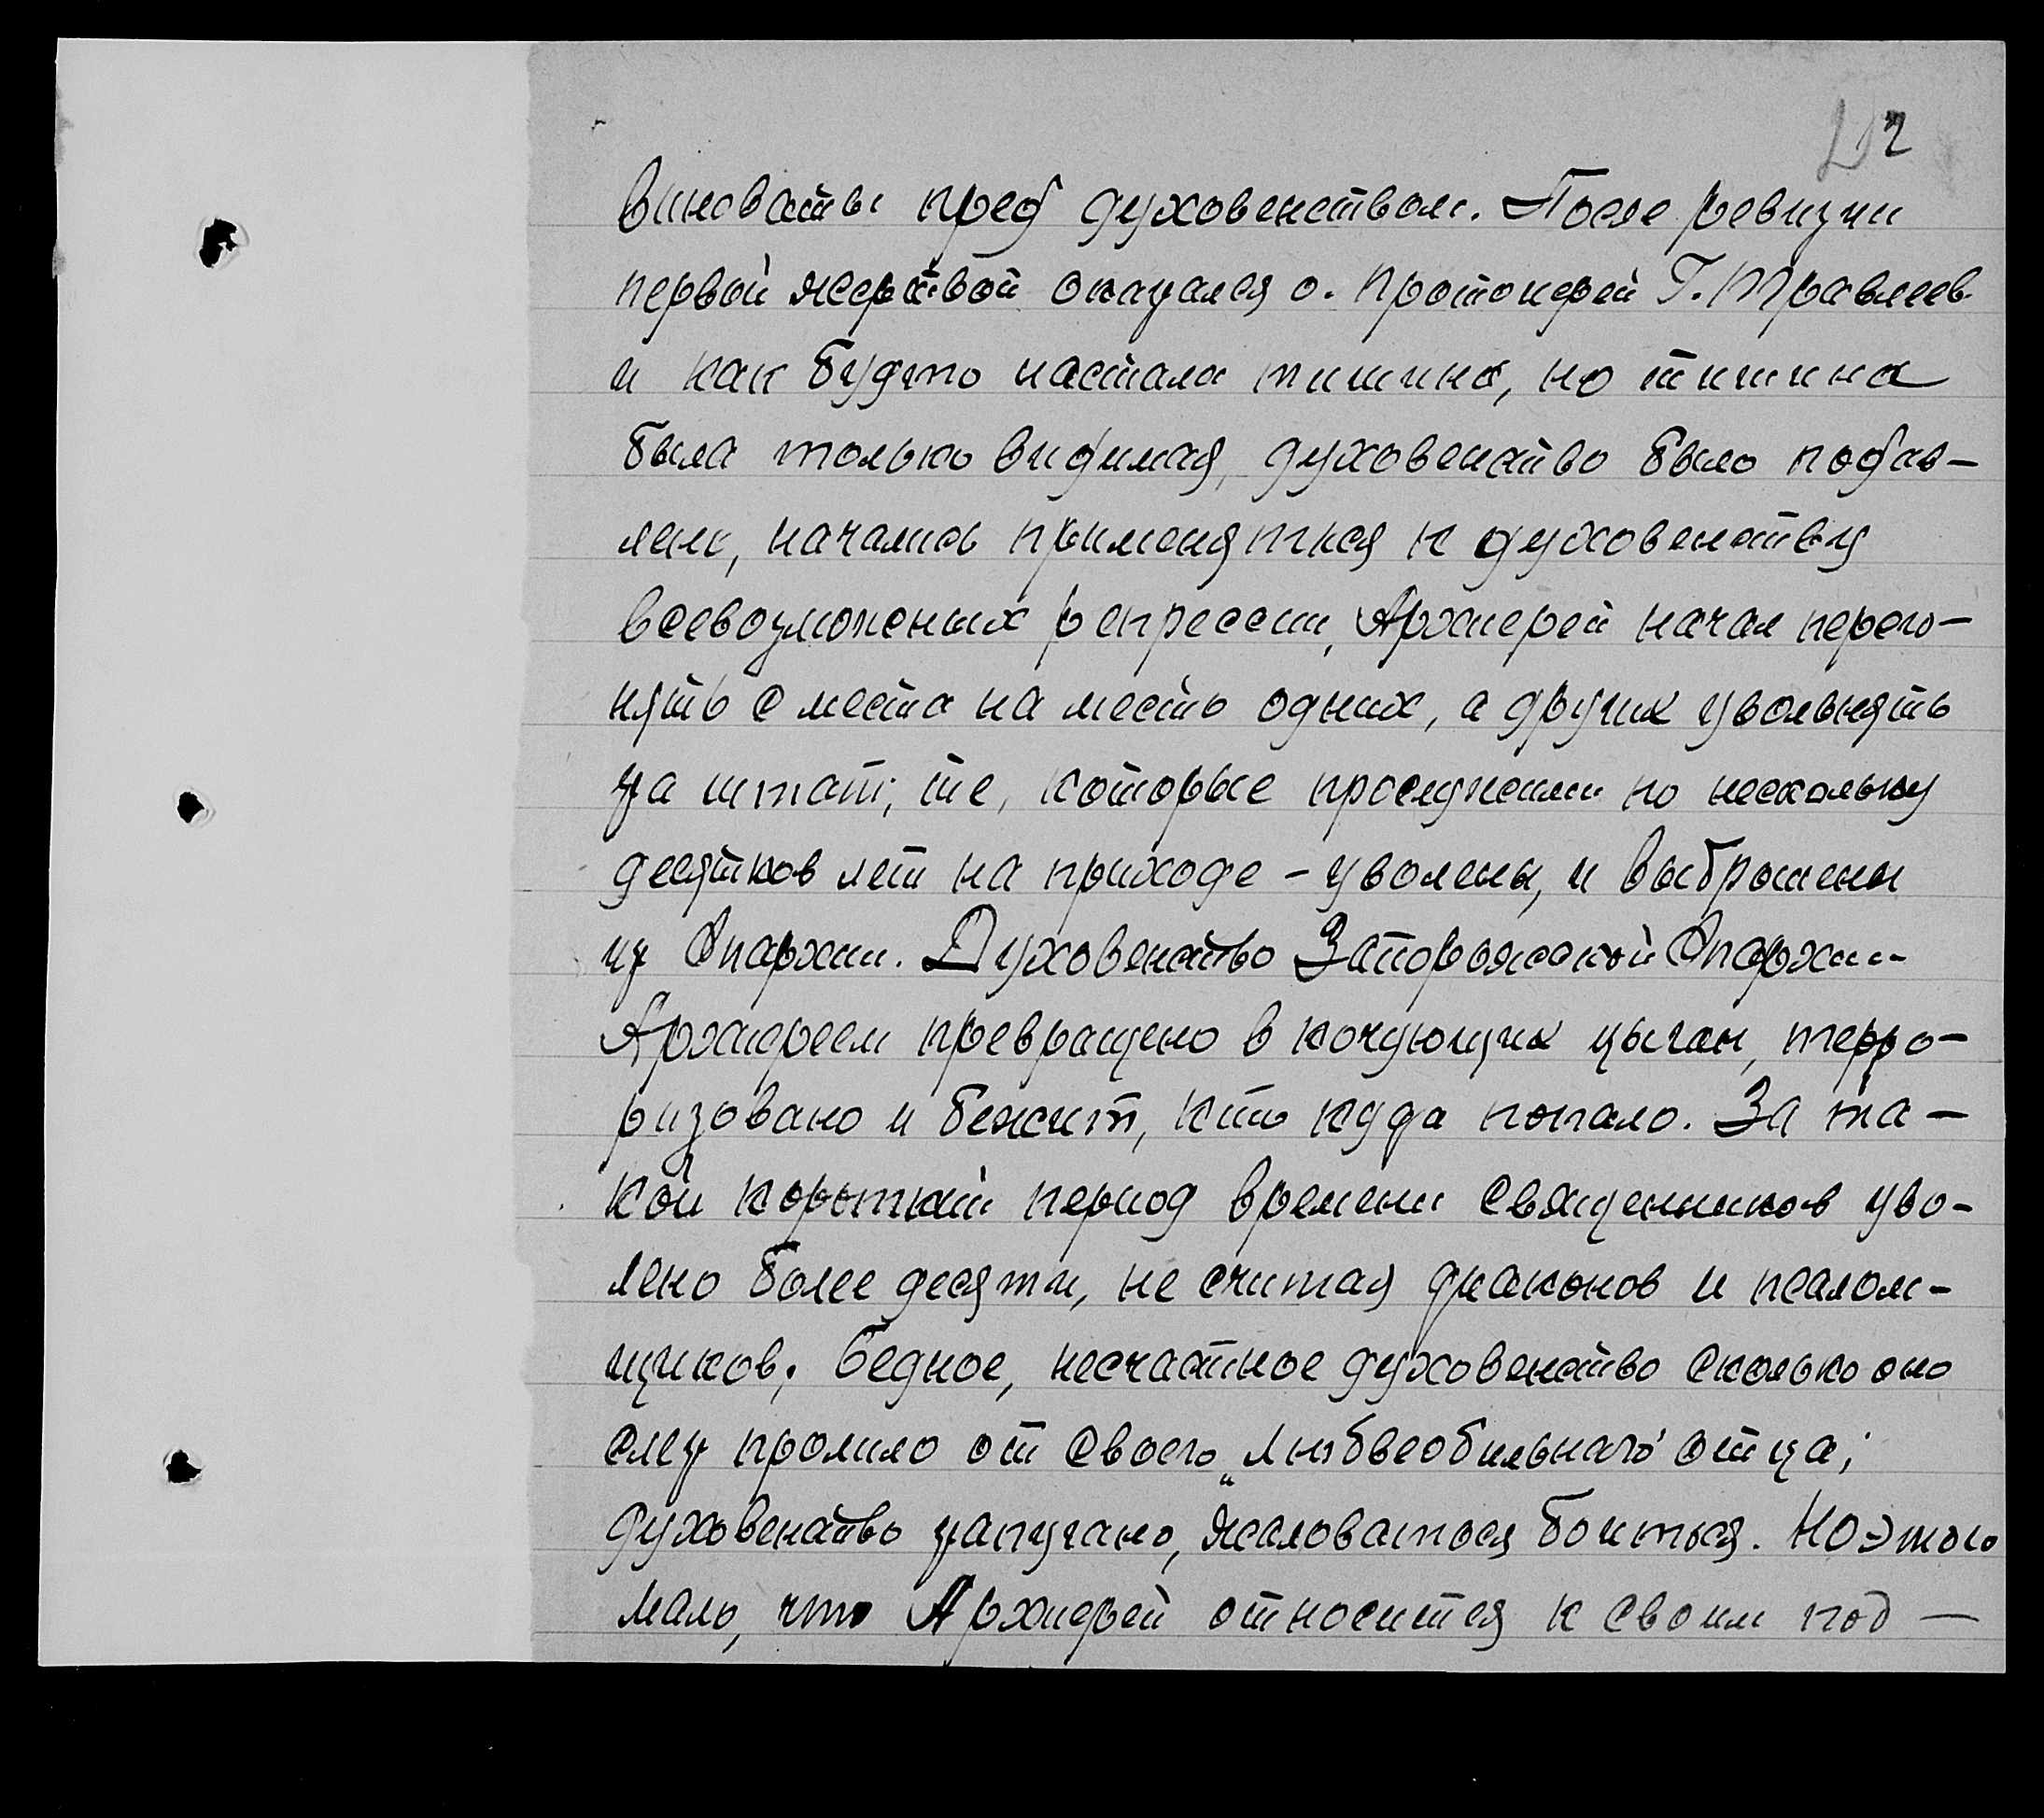 2
виноваты пред духовенством. После ревизии
первой жертвой оказался о. протоиерей Г. Травлеев
и как будто настала тишина, но тишина
была только видимая, духовенство было подав-
лено, начались применяться к духовенству
всевозможных репрессии, Архиерей начал перего-
нять с места на место одних, а других увольнять
за штат; те, которые прослужили по нескольку
десятков лет на приходе - уволены, и выброшены
из Епархии. Духовенство Запорожской Епархии
Архиереем превращено в кочующих цыган, терро-
ризовано и бежит, кто куда попало. За та-
кой короткий период времени священников уво-
лено более десяти, не считая диаконов и псалом-
щиков. Бедное, несчастное духовенство сколько оно
слез пролило от своего „Любвеобильнаго" отца;
духовенство запугано, жаловаться боиться. Но этого
мало, что Архиерей относится к своим под-